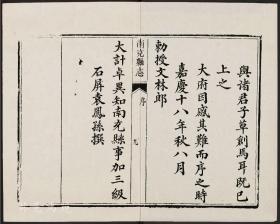 與諸君子草創焉耳既已
上之
大府因感其難而序之時
嘉慶十八年秋八月
勅授文林郎
南充縣志
序
九
大計卓異知南充縣事加三級
石屏袁鳳孫撰